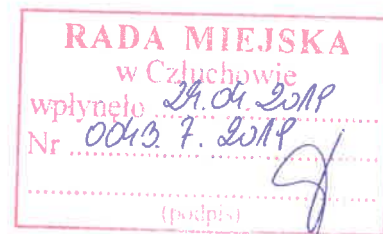 RADA MIEJSKA
w Człuchowie
wpłynęło 29.04.2019
Nr 0043.7.2019
(podpis)